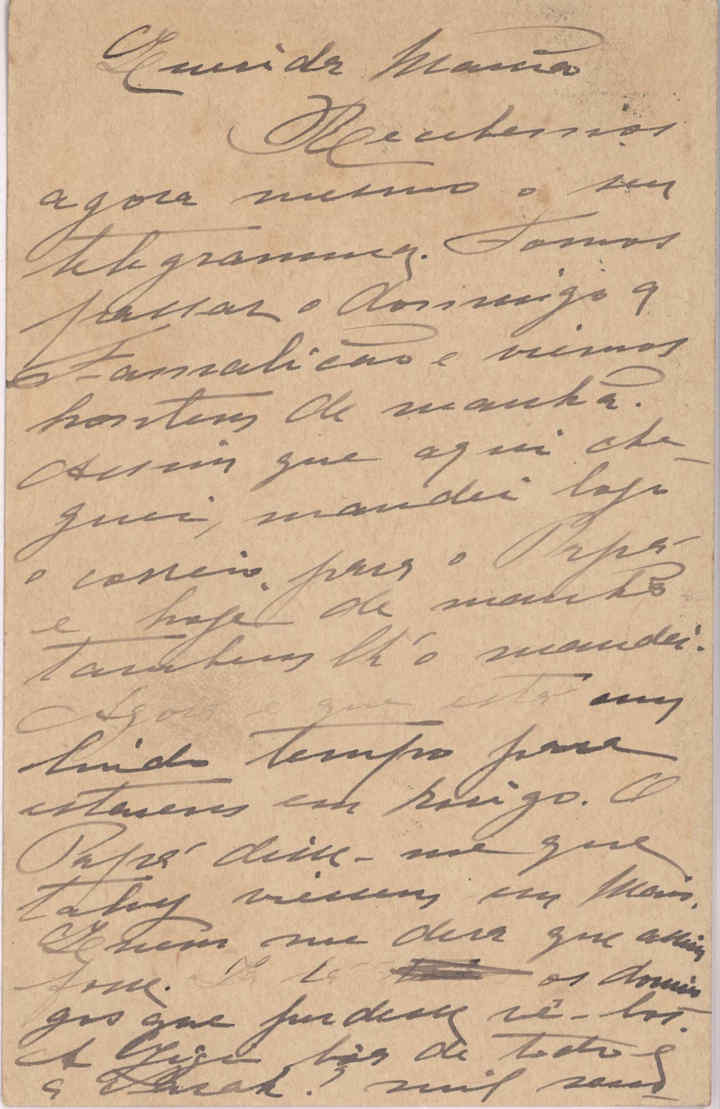 Querida Mamã
Recebemos
agora mesmo o seu
telegramma. Fomos
passar o domingo a
Famalicão e viemos
hontem de manhã.
Assim que aqui che-
guei, mandei logo
o correio para o Papá
e hoje de manhã
tambem lh'o mandei.
Agora é que está um
lindo tempo para
estarem em
Papá disse-me que
talvez viessem em Maio.
Quem me dera que assim
fosse. os domin
gos que pudesse vê-los.
A Gigi boa de todo e
a Sarah? mil sau